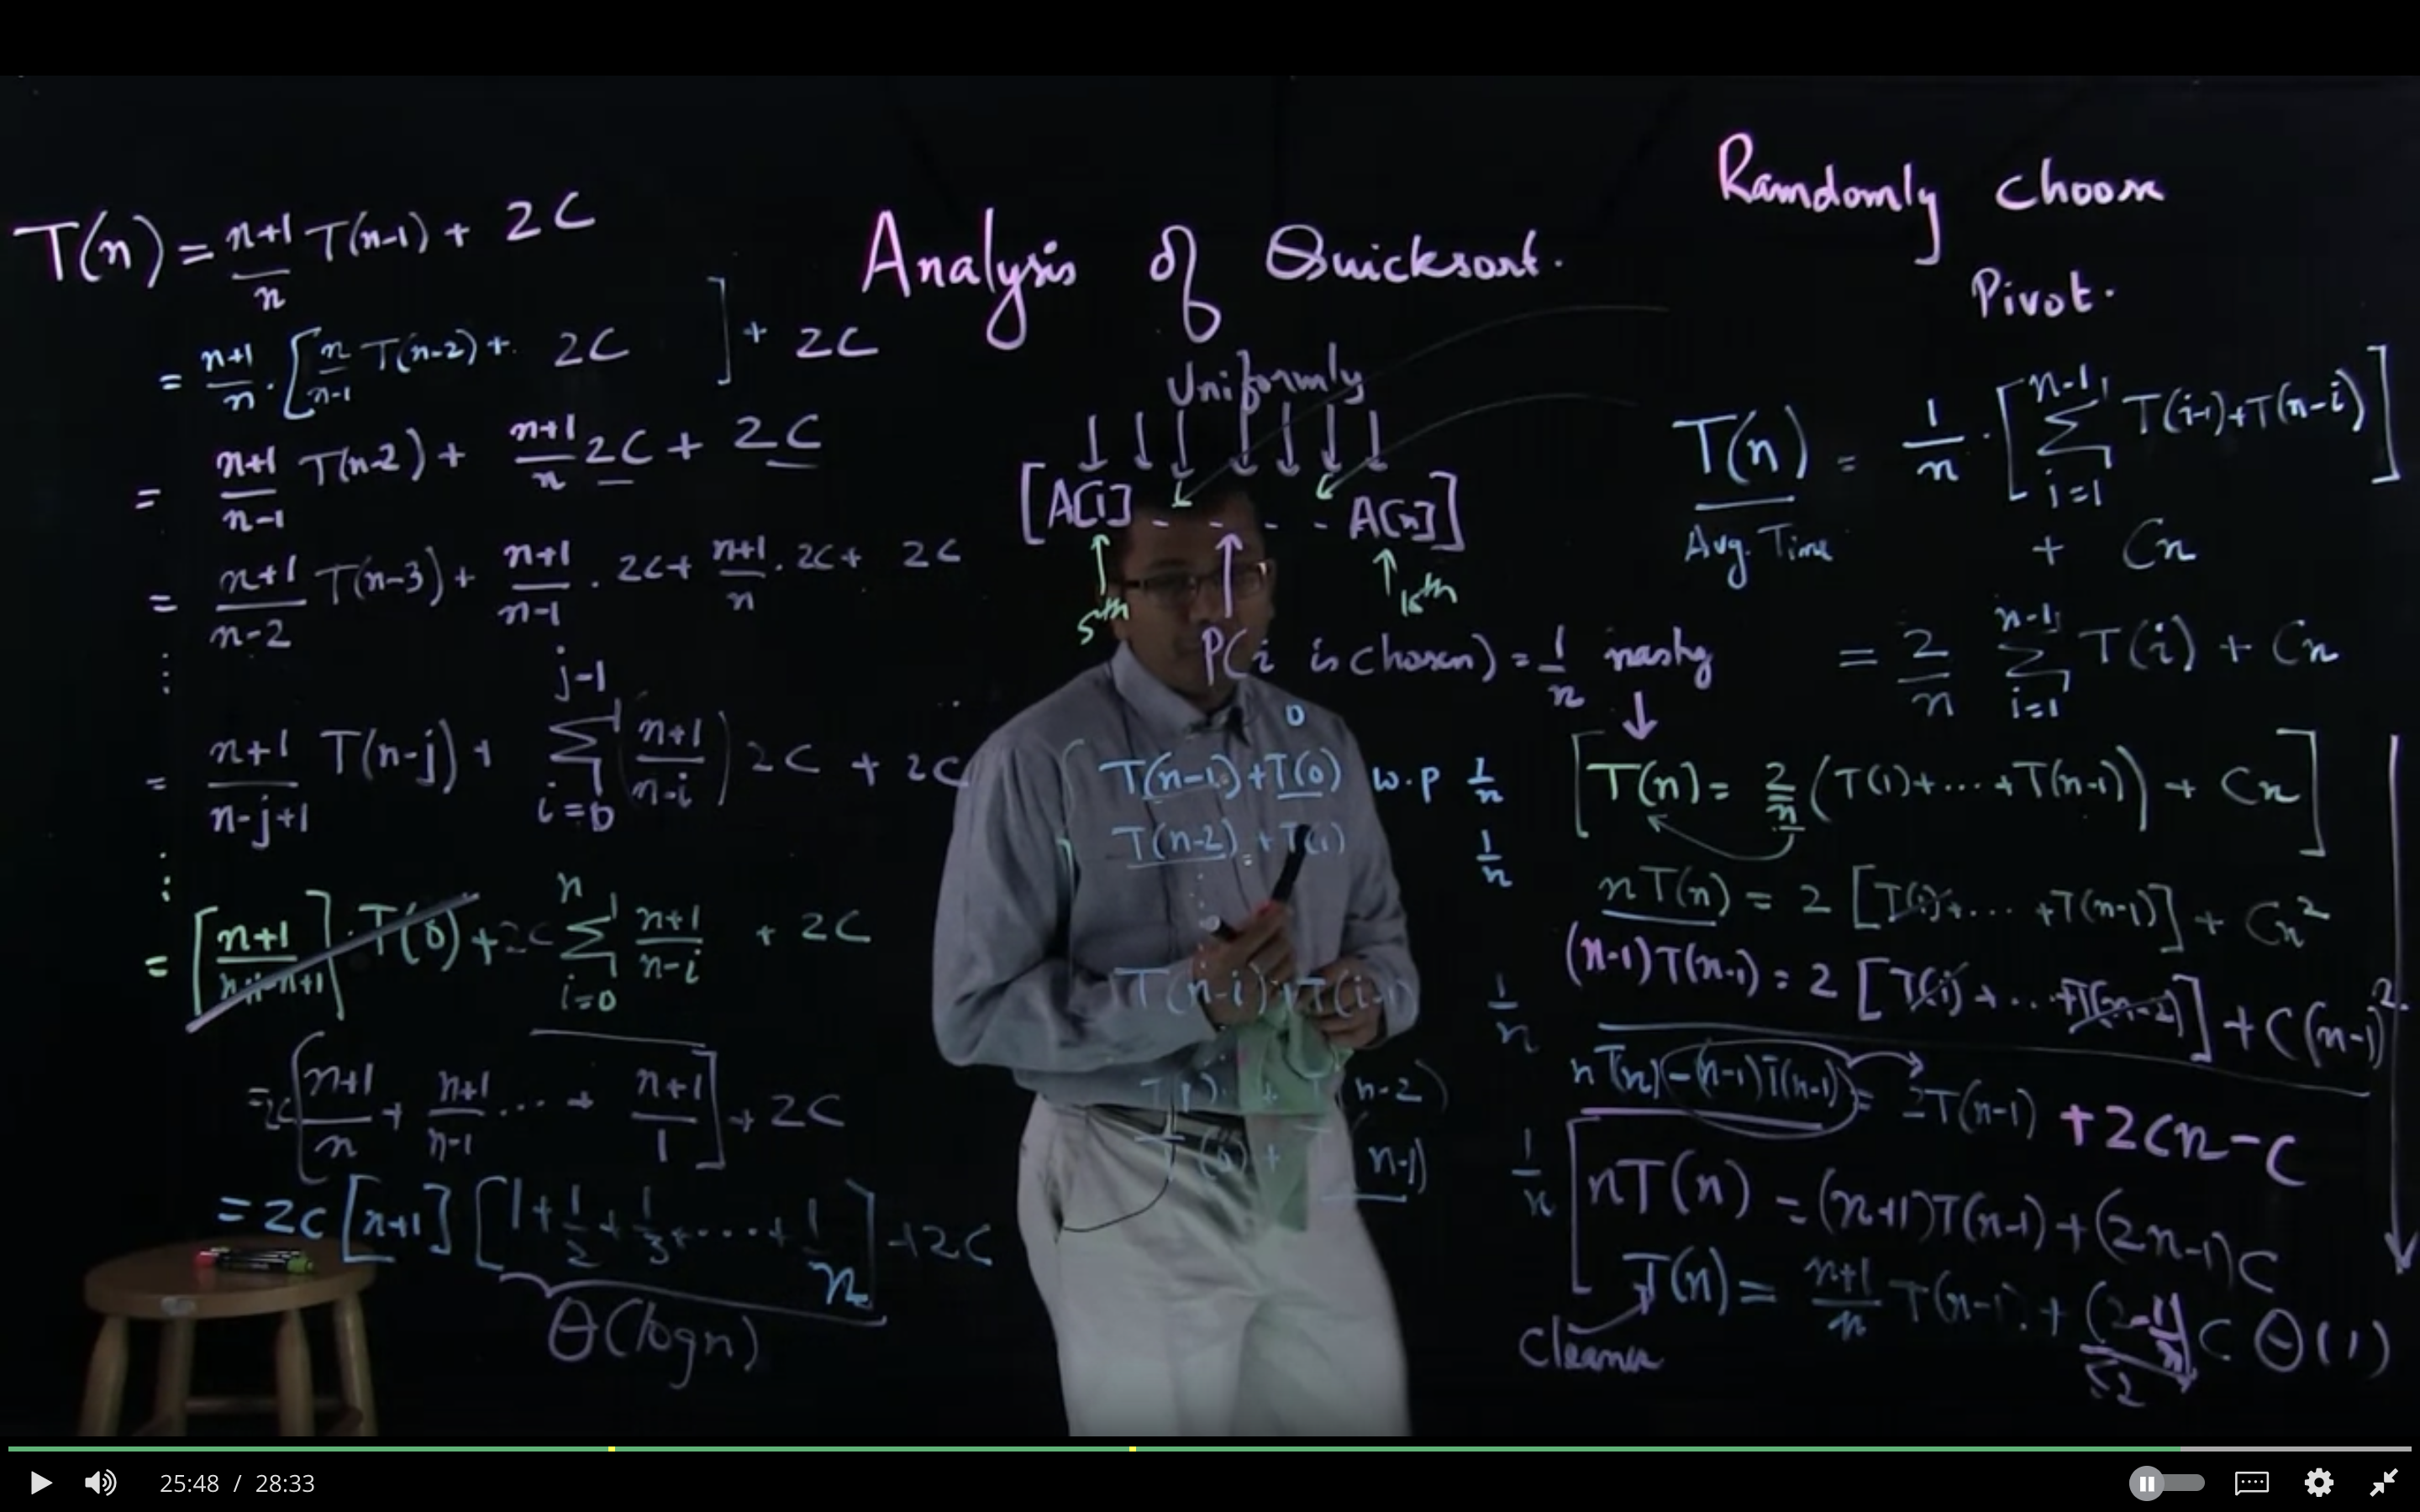 Analysis of Quicksort.
Randomly choose
Pivot.
T(n) = n+1/n T(n-1) + 2C
= n+1/n · [n/n-1 T(n-2) + 2C] + 2C
= n+1/n-1 T(n-2) + n+1/n 2C + 2C
= n+1/n-2 T(n-3) + n+1/n-1 · 2C + n+1/n · 2C + 2C
⋮
= n+1/n-j+1 T(n-j) + Σ_{i=0}^{j-1} (n+1/n-i) 2C + 2C
⋮
= [n+1/n-n+1] · T(0) + 2C Σ_{i=0}^{n} n+1/n-i + 2C
= 2C [n+1/n + n+1/n-1 ... + n+1/1] + 2C
= 2C [n+1] [1 + 1/2 + 1/3 + ... + 1/n] + 2C
Θ(log n)
Uniformly
[A[1] - - - - A[n]]
5th
15th
P(i is chosen) = 1/n
0
T(n-1) + T(0) w.p 1/n
T(n-2) + T(1) 1/n
⋮
T(n-i) + T(i-1) 1/n
T(1) + T(n-2)
T(0) + T(n-1) 1/n
T(n) = 1/n · [Σ_{i=1}^{n-1} T(i-1) + T(n-i)]
Avg. Time + Cn
= 2/n Σ_{i=1}^{n-1} T(i) + Cn
nasty
[T(n) = 2/n (T(1) + ... + T(n-1)) + Cn]
nT(n) = 2 [T(1) + ... + T(n-1)] + Cn²
(n-1)T(n-1) = 2 [T(1) + ... + T(n-2)] + C(n-1)²
nT(n) - (n-1)T(n-1) = 2T(n-1) + 2Cn - C
nT(n) = (n+1)T(n-1) + (2n-1)C
T(n) = n+1/n T(n-1) + (2-1/n) C Θ(1)
≤2
Cleaner
25:48 / 28:33